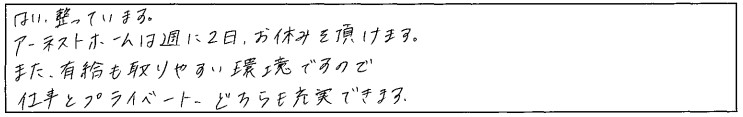 はい、整っています。
アーネストホームは週に2日、お休みを頂けます。
また、有給も取りやすい環境ですので
仕事とプライベート、どちらも充実できます。